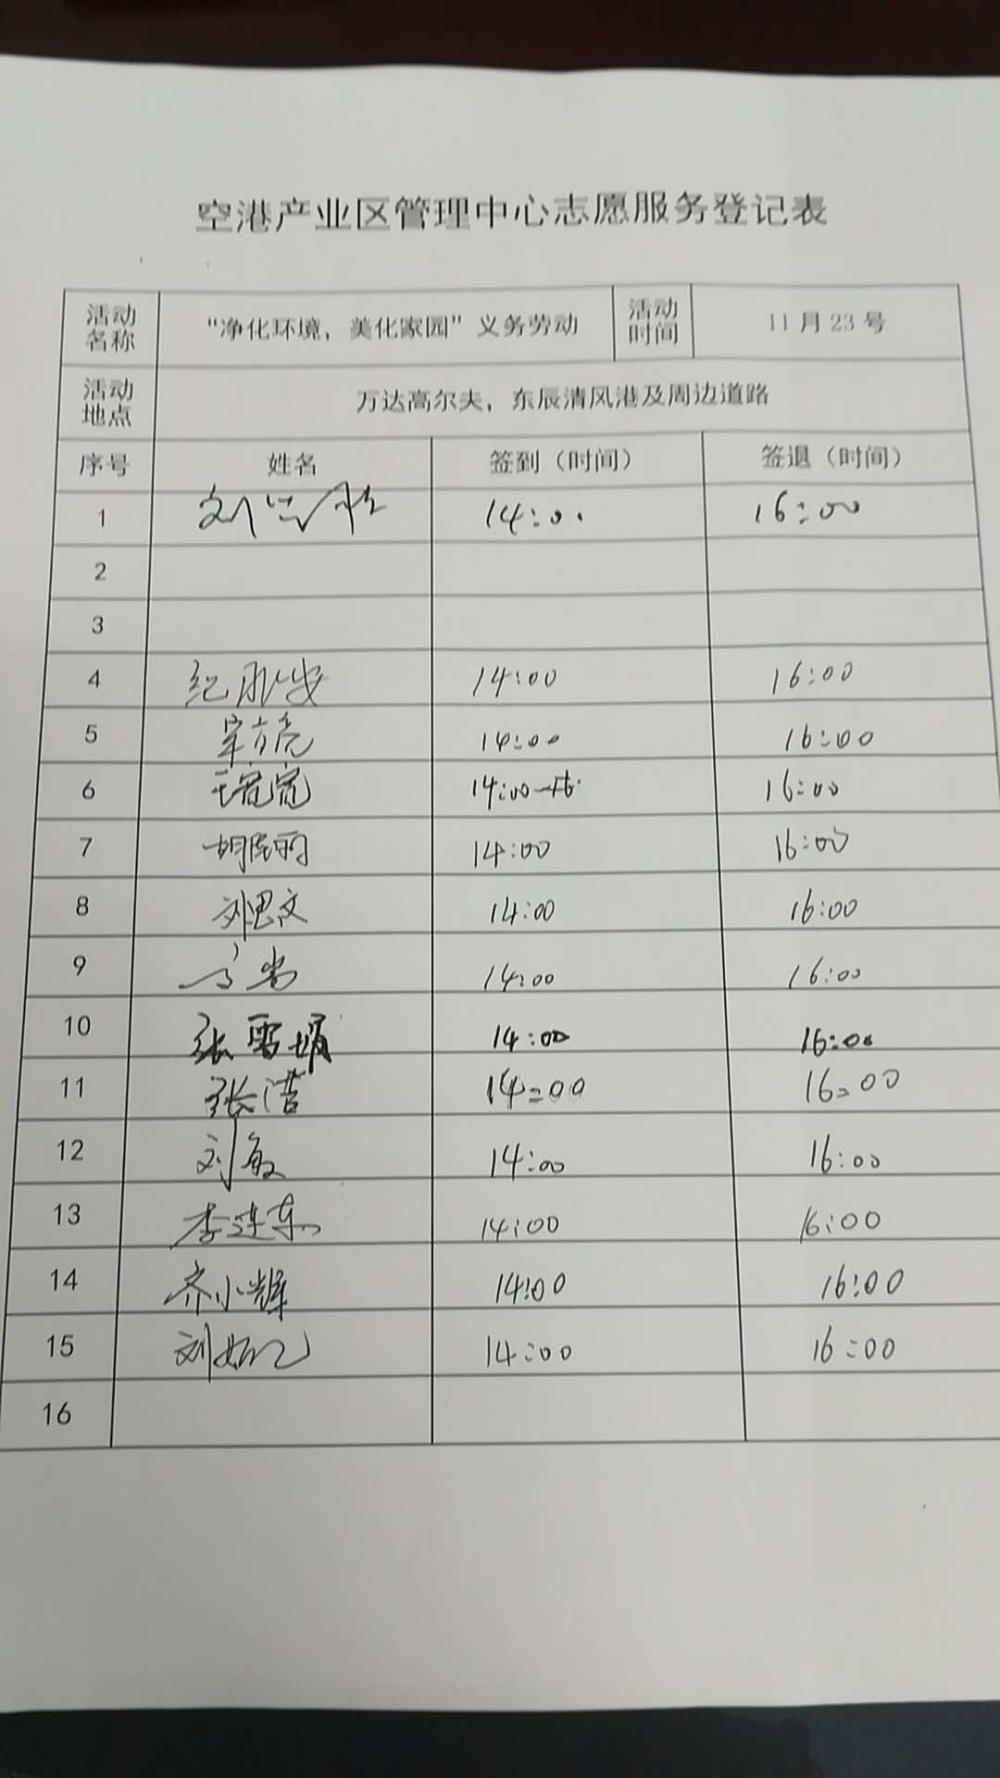 空港产业区管理中心志愿服务登记表
活动名称 “净化环境，美化家园”义务劳动 活动时间 11月23号
活动地点 万达高尔夫，东辰清风港及周边道路
序号 姓名 签到（时间） 签退（时间）
1 刘 14:00 16:00
2
3
4 纪 安 14:00 16:00
5 14:00 16:00
6 王 14:00 16:00
7 胡 14:00 16:00
8 刘思文 14:00 16:00
9 14:00 16:00
10 张雪娟 14:00 16:00
11 张浩 14:00 16:00
12 刘敏 14:00 16:00
13 李连东 14:00 16:00
14 齐小辉 14:00 16:00
15 刘 14:00 16:00
16